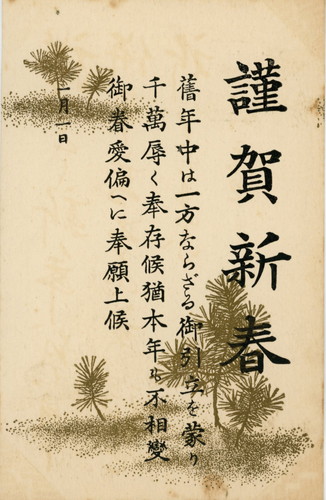 謹賀新春
舊年中は一方ならざる御引立を蒙り
千萬辱く奉存候猶本年も不相變
御眷愛偏へに奉願上候
一月一日